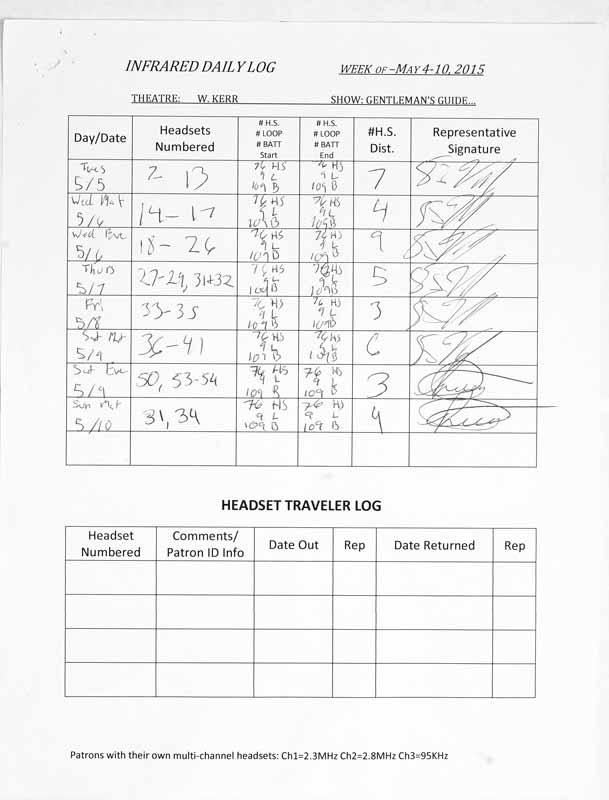 INFRARED DAILY LOG WEEK OF –MAY 4-10, 2015
THEATRE: W. KERR SHOW: GENTLEMAN'S GUIDE...
Day/Date Headsets Numbered # H.S. # LOOP # BATT Start # H.S. # LOOP # BATT End #H.S. Dist. Representative Signature
Tues 5/5 2 - 13 76 HS 9 L 109 B 76 HS 9 L 109 B 7
Wed Mat 5/6 14 - 17 76 HS 9 L 109 B 76 HS 9 L 109 B 4
Wed Eve 5/6 18 - 26 76 HS 9 L 109 B 76 HS 9 L 109 B 9
Thurs 5/7 27-29, 31+32 76 HS 9 L 109 B 76 HS 9 L 109 B 5
Fri 5/8 33-35 76 HS 9 L 109 B 76 HS 9 L 109 B 3
Sat Mat 5/9 36-41 76 HS 9 L 109 B 76 HS 9 L 109 B 6
Sat Eve 5/9 50, 53-54 76 HS 9 L 109 B 76 HS 9 L 109 B 3
Sun Mat 5/10 31, 34 76 HS 9 L 109 B 76 HS 9 L 109 B 4
HEADSET TRAVELER LOG
Headset Numbered Comments/ Patron ID Info Date Out Rep Date Returned Rep
Patrons with their own multi-channel headsets: Ch1=2.3MHz Ch2=2.8MHz Ch3=95KHz